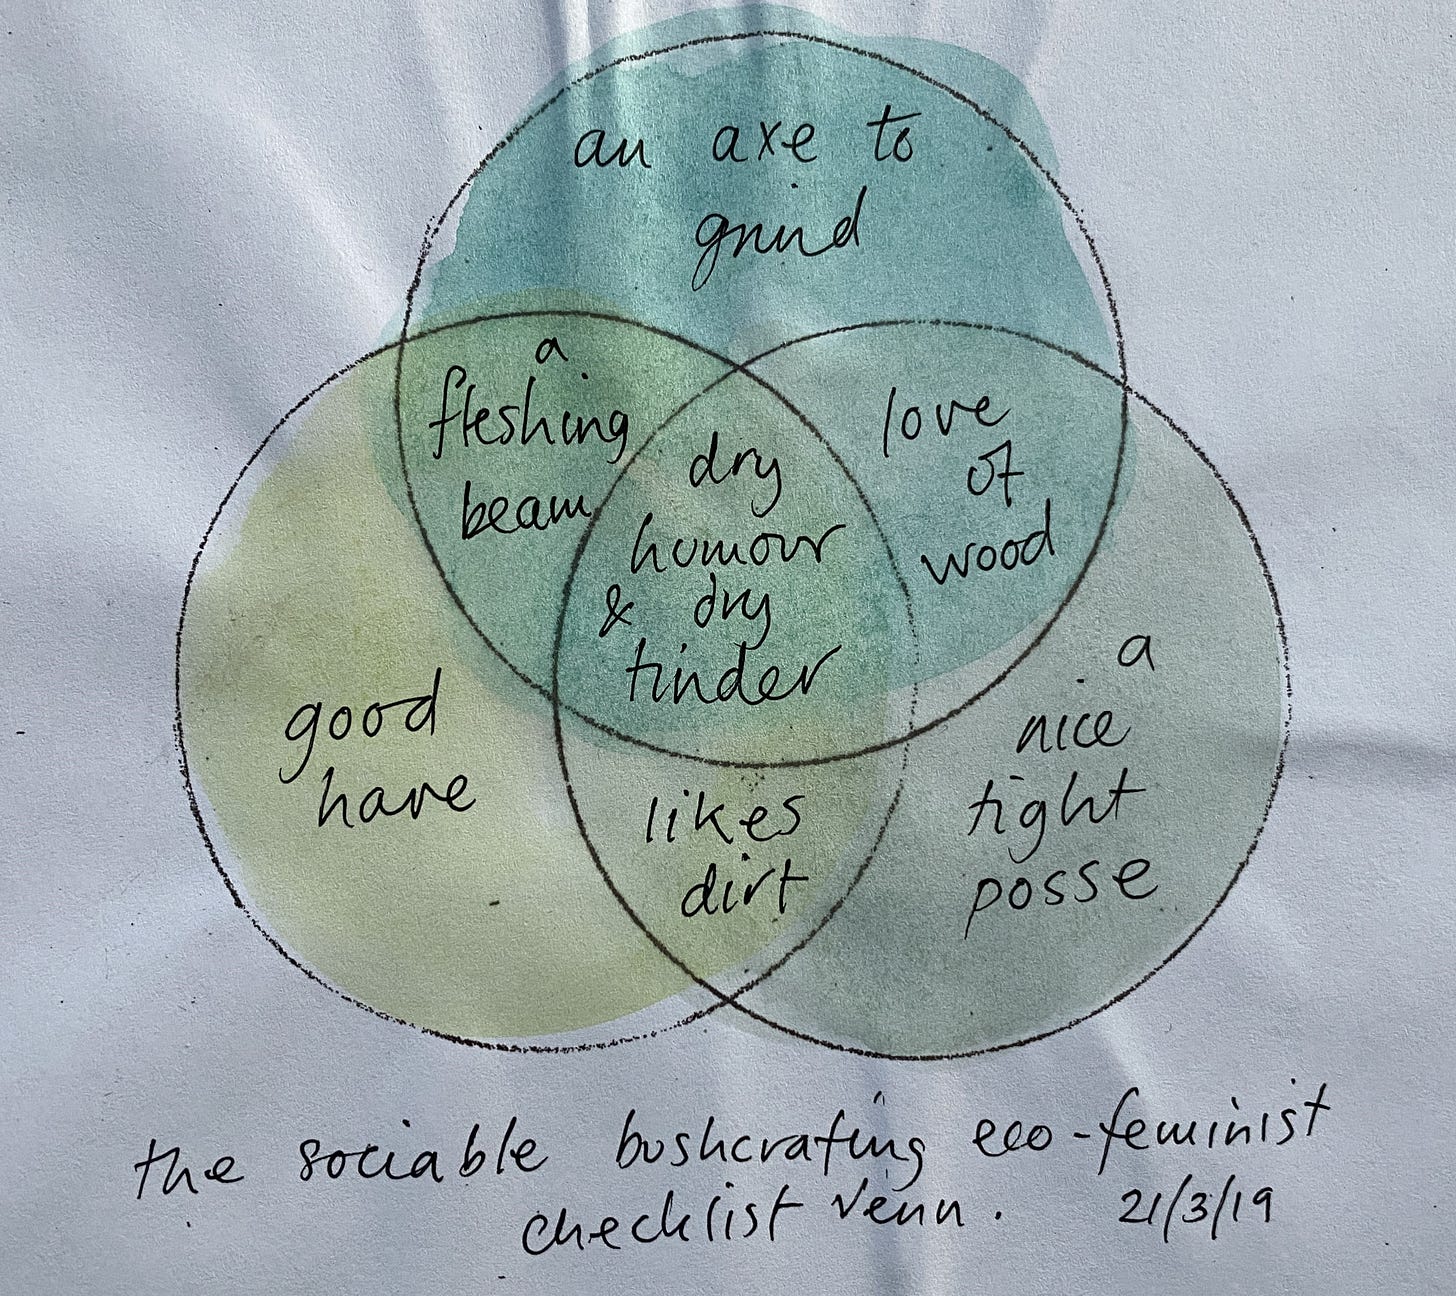 an axe to
grind
a
fleshing
beam
dry
humour
& dry
tinder
love
of
wood
good
hare
a
nice
tight
posse
likes
dirt
the sociable bushcrafting eco-feminist
checklist venn. 21/3/19